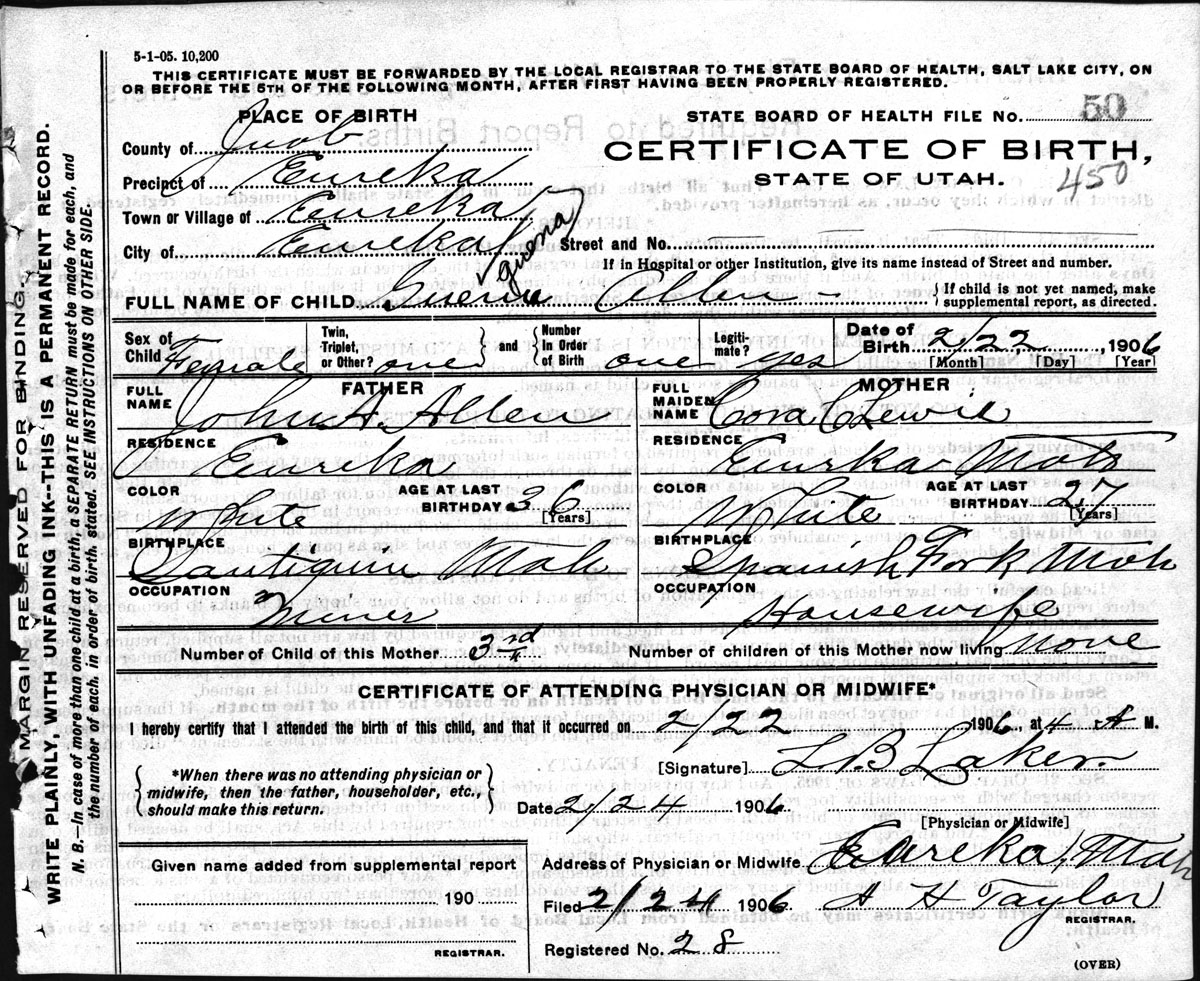 5-1-05. 10,200
THIS CERTIFICATE MUST BE FORWARDED BY THE LOCAL REGISTRAR TO THE STATE BOARD OF HEALTH, SALT LAKE CITY, ON
OR BEFORE THE 5TH OF THE FOLLOWING MONTH, AFTER FIRST HAVING BEEN PROPERLY REGISTERED.
MARGIN RESERVED FOR BINDING.
WRITE PLAINLY, WITH UNFADING INK--THIS IS A PERMANENT RECORD.
N. B.--In case of more than one child at a birth, a SEPARATE RETURN must be made for each, and
the number of each, in order of birth, stated. SEE INSTRUCTIONS ON OTHER SIDE.
PLACE OF BIRTH
County of Juab
Precinct of Eureka
Town or Village of Eureka
City of Eureka
STATE BOARD OF HEALTH FILE No. 50
CERTIFICATE OF BIRTH,
STATE OF UTAH. 450
Street and No.
If in Hospital or other Institution, give its name instead of Street and number.
FULL NAME OF CHILD Allen
If child is not yet named, make
supplemental report, as directed.
Sex of Child Female
Twin, Triplet, or Other? one
and
Number In Order of Birth one
Legiti-mate? yes
Date of Birth 2/22, 1906
[Month] [Day] [Year]
FATHER
FULL NAME John A. Allen
RESIDENCE Eureka
COLOR White
AGE AT LAST BIRTHDAY 36
[Years]
BIRTHPLACE Santiquin Utah
OCCUPATION Miner
MOTHER
FULL MAIDEN NAME Cora
RESIDENCE Eureka Utah
COLOR White
AGE AT LAST BIRTHDAY 27
[Years]
BIRTHPLACE Spanish Fork Utah
OCCUPATION Housewife
Number of Child of this Mother 3rd
Number of children of this Mother now living None
CERTIFICATE OF ATTENDING PHYSICIAN OR MIDWIFE*
I hereby certify that I attended the birth of this child, and that it occurred on 2/22 1906 at 4 A M.
*When there was no attending physician or
midwife, then the father, householder, etc.,
should make this return.
[Signature] L. B. Laker
Date 2/24 1906.
[Physician or Midwife]
Given name added from supplemental report
190
REGISTRAR.
Address of Physician or Midwife Eureka, Utah
Filed 2/24 1906. H Taylor
REGISTRAR.
Registered No. 28
(OVER)